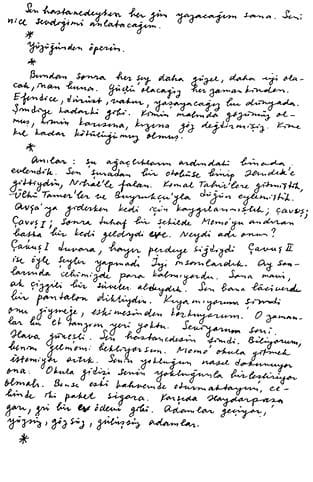 Sen hastanedeyken her gün yazacağım sana. Seni
nice sevdiğimi anlatacağım.
*
Yüzüğünden öperim.
*
Bundan sonra her şey daha güzel, daha iyi ola-
cak, inan buna. Güçlü olacağız her zamankinden.
Efendice, dürüst, vakur, yaşayacağız bu dünyada.
Şimdiye kadarki gibi. Kimin malında gözümüz ol-
muş, kimin karısına, kızına göz değdirmişiz. Kime
kıl kadar kötülüğümüz olmuş.
*
Anılar: şu ağaçlıkların ardındaki binada
evlendik. Sen şuradan bir otobüse binip
gittiydin, Nihal'le falan. Kemal Tahir'lere gitmiştik,
Ülkü Tamer'ler ve Buyrukçu'yla düğün eylemiştik.
Avşa'ya giderken kedi için kaygılanmıştık; Çavuş;
Çavuş I; sonra tuhaf bir şekilde Memo'yu andıran
başka bir kedi geldiydi eve. Neydi adı onun?
Çavuş I duvara, hayır perdeye sıçdıydı Çavuş II
ise öyle şeyler yapmadı. İyi insanlardık. Ay son-
larında cebimizde para kalmıyordu. Sana mavi,
ak çizgili bir süveter aldıydık. Sen bana lâciverde
bir pantalon diktiydin. Kıyamıyorum şimdi
onu giymeye, eskimesinden korkuyorum. O zaman-
lar bu et hangam yeri yoktu. Seviyorum seni.
Hava güneşli. Sen hastanedesin şimdi. Biliyorum,
benim gelmemi bekliyorsun. Memo okula gitmek
istemiyor artık. Senin yokluğun nasıl dokunuyor
ona. Okula gidişi senin yokluğunla birleştiriyor
olmalı. Bense eski kahvemde oturmaktayım, ce-
bimde iki paket sigara. Karşıda Haydarpaşa
garı, gri bir ödevi gibi. Adamlar geçiyor,
yüzsüz, gözsüz, gülüşsüz adamlar.
*